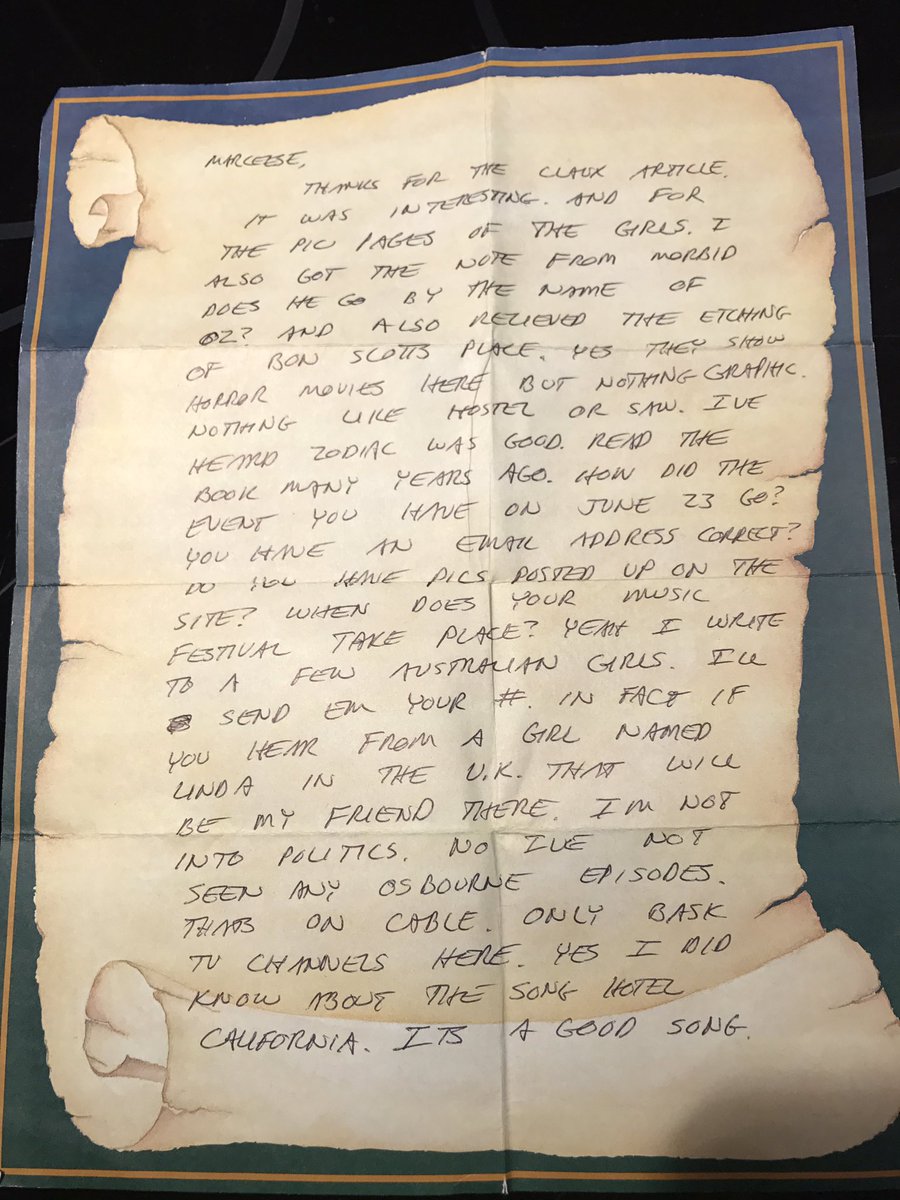 MARCEESE,
THANKS FOR THE CLAUX ARTICLE.
IT WAS INTERESTING. AND FOR
THE PIC PAGES OF THE GIRLS. I
ALSO GOT THE NOTE FROM MORBID
DOES HE GO BY THE NAME OF
OZ? AND ALSO RELIEVED THE ETCHING
OF BON SCOTTS PLACE. YES THEY SHOW
HORROR MOVIES HERE BUT NOTHING GRAPHIC.
NOTHING LIKE HOSTEL OR SAW. IVE
HEARD ZODIAC WAS GOOD. READ THE
BOOK MANY YEARS AGO. HOW DID THE
EVENT YOU HAVE ON JUNE 23 GO?
YOU HAVE AN EMAIL ADDRESS CORRECT?
DO YOU HAVE PICS POSTED UP ON THE
SITE? WHEN DOES YOUR MUSIC
FESTIVAL TAKE PLACE? YEAH I WRITE
TO A FEW AUSTRALIAN GIRLS. ILL
SEND EM YOUR #. IN FACT IF
YOU HEAR FROM A GIRL NAMED
LINDA IN THE U.K. THAT WILL
BE MY FRIEND THERE. IM NOT
INTO POLITICS. NO IVE NOT
SEEN ANY OSBOURNE EPISODES.
THATS ON CABLE. ONLY BASIC
TV CHANNELS HERE. YES I DID
KNOW ABOUT THE SONG HOTEL
CALIFORNIA. ITS A GOOD SONG.